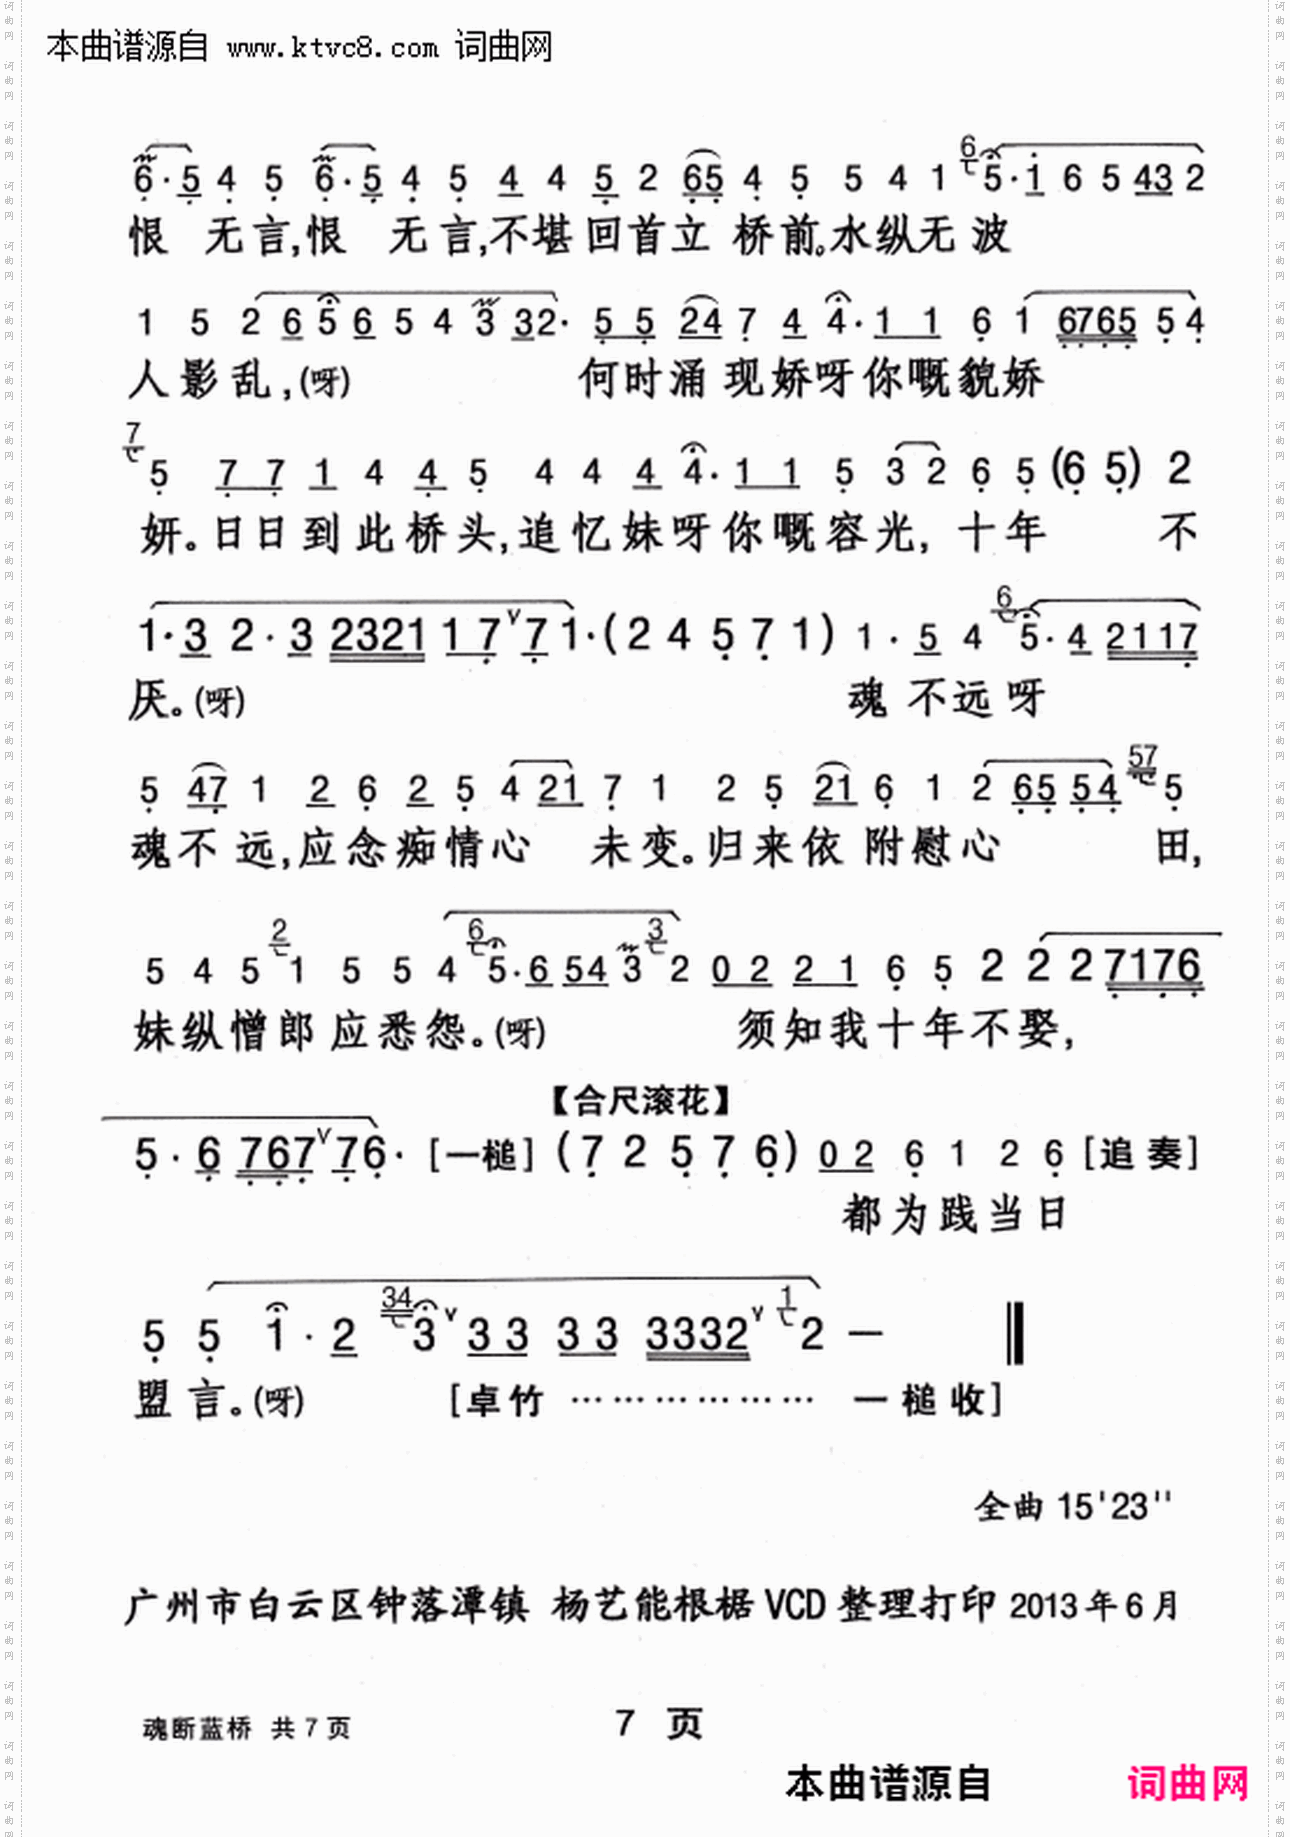 本曲谱源自 www.ktvc8.com 词曲网
6·5 4 5 6·5 4 5 4 4 5 2 65 4 5 5 4 1 6 5·1 6 5 43 2
恨 无言,恨 无言,不堪回首立 桥前。水纵无 波
1 5 2 6 5 6 5 4 3 32· 5 5 24 7 4 4·1 1 6 1 6765 5 4
人影乱,(呀) 何时涌 现娇呀你嘅貌娇
7 5 7 7 1 4 4 5 4 4 4 4·1 1 5 3 2 6 5 (6 5) 2
妍。日日到此桥头,追忆妹呀你嘅容光, 十年 不
1·3 2·3 2321 1 7 v 7 1·(2 4 5 7 1) 1·5 4 6 5·4 2117
厌。(呀) 魂 不远呀
5 47 1 2 6 2 5 4 21 7 1 2 5 21 6 1 2 65 54 57 5
魂不 远,应念痴情心 未变。归来依 附慰心 田,
5 4 5 2 1 5 5 4 6 5·6 54 3 3 2 0 2 2 1 6 5 2 2 2 7176
妹纵憎郎 应悉怨。(呀) 须知我十年不娶,
【合尺滚花】
5·6 767 v 76· [一槌] (7 2 5 7 6) 0 2 6 1 2 6 [追奏]
都为践当日
5 5 1·2 34 3 v 3 3 3 3 3332 v 1 2 —
盟言。(呀) [卓竹 ……………… 一槌收]
全曲 15'23''
广州市白云区钟落潭镇 杨艺能根椐 VCD 整理打印 2013 年 6 月
魂断蓝桥 共 7 页
7 页
本曲谱源自 词曲网